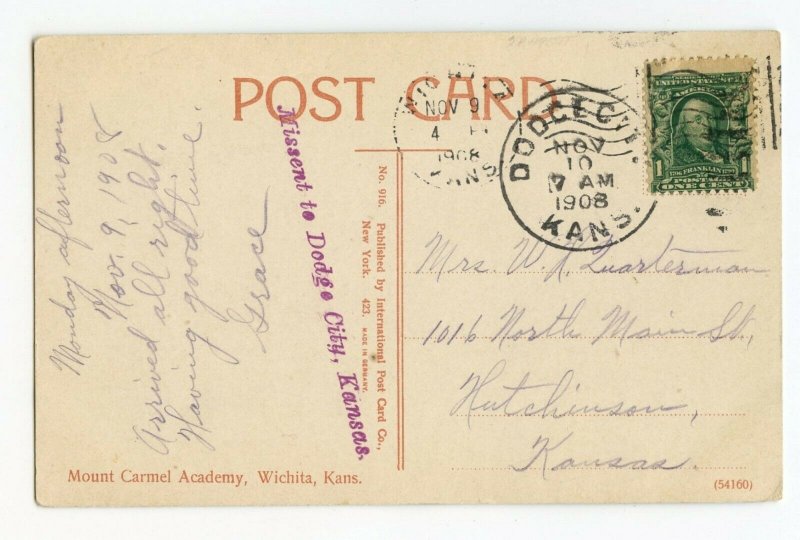 POST CARD
Monday afternoon
Nov. 9, 1908
Arrived all right.
Having good time.
Grace
Missent to Dodge City, Kansas.
No. 916. Published by International Post Card Co.,
New York. 423. MADE IN GERMANY.
WICHITA
NOV 9
4 P
1908
KANS
DODGE CITY
NOV
10
7 AM
1908
KANS.
SERIES 1902
UNITED STATES OF AMERICA
1 FRANKLIN 1
POSTAGE
ONE CENT
Mrs. W. R. Quarterman
1016 North Main St,
Hutchinson,
Kansas.
Mount Carmel Academy, Wichita, Kans.
(54160)